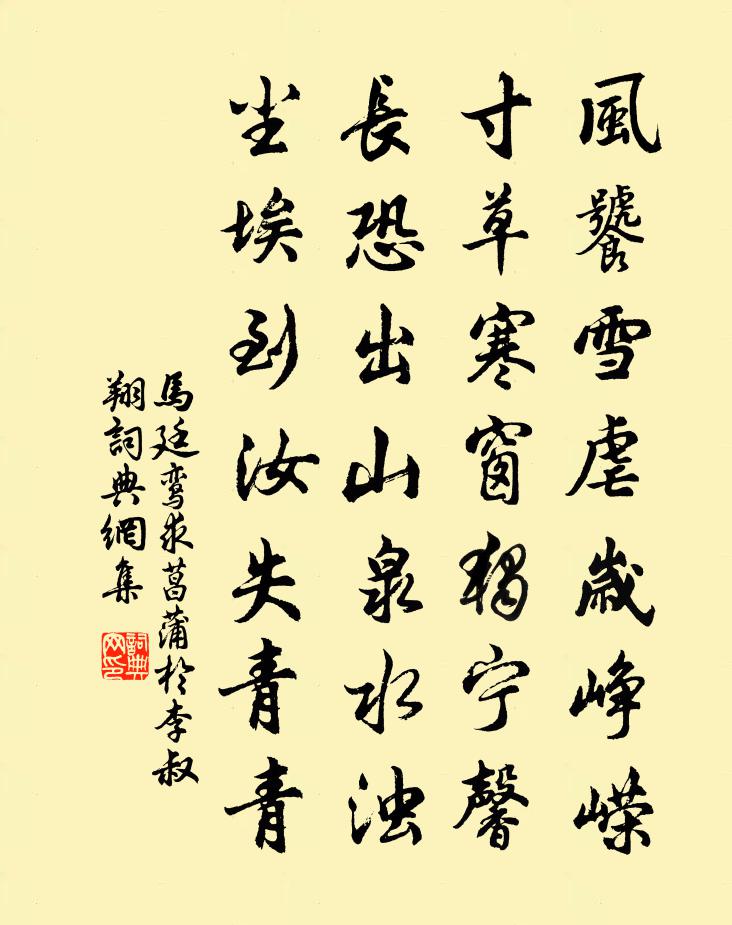 風饕雪虐歲崢嶸
寸草寒窗獨宁馨
長恐出山泉水浊
尘埃到汝失青青
馬廷鸾求菖蒲於李叔
翔詞典網集
詞典
网印